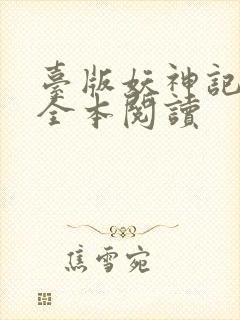 臺版妖神記
全本閱讀
焦雪宛